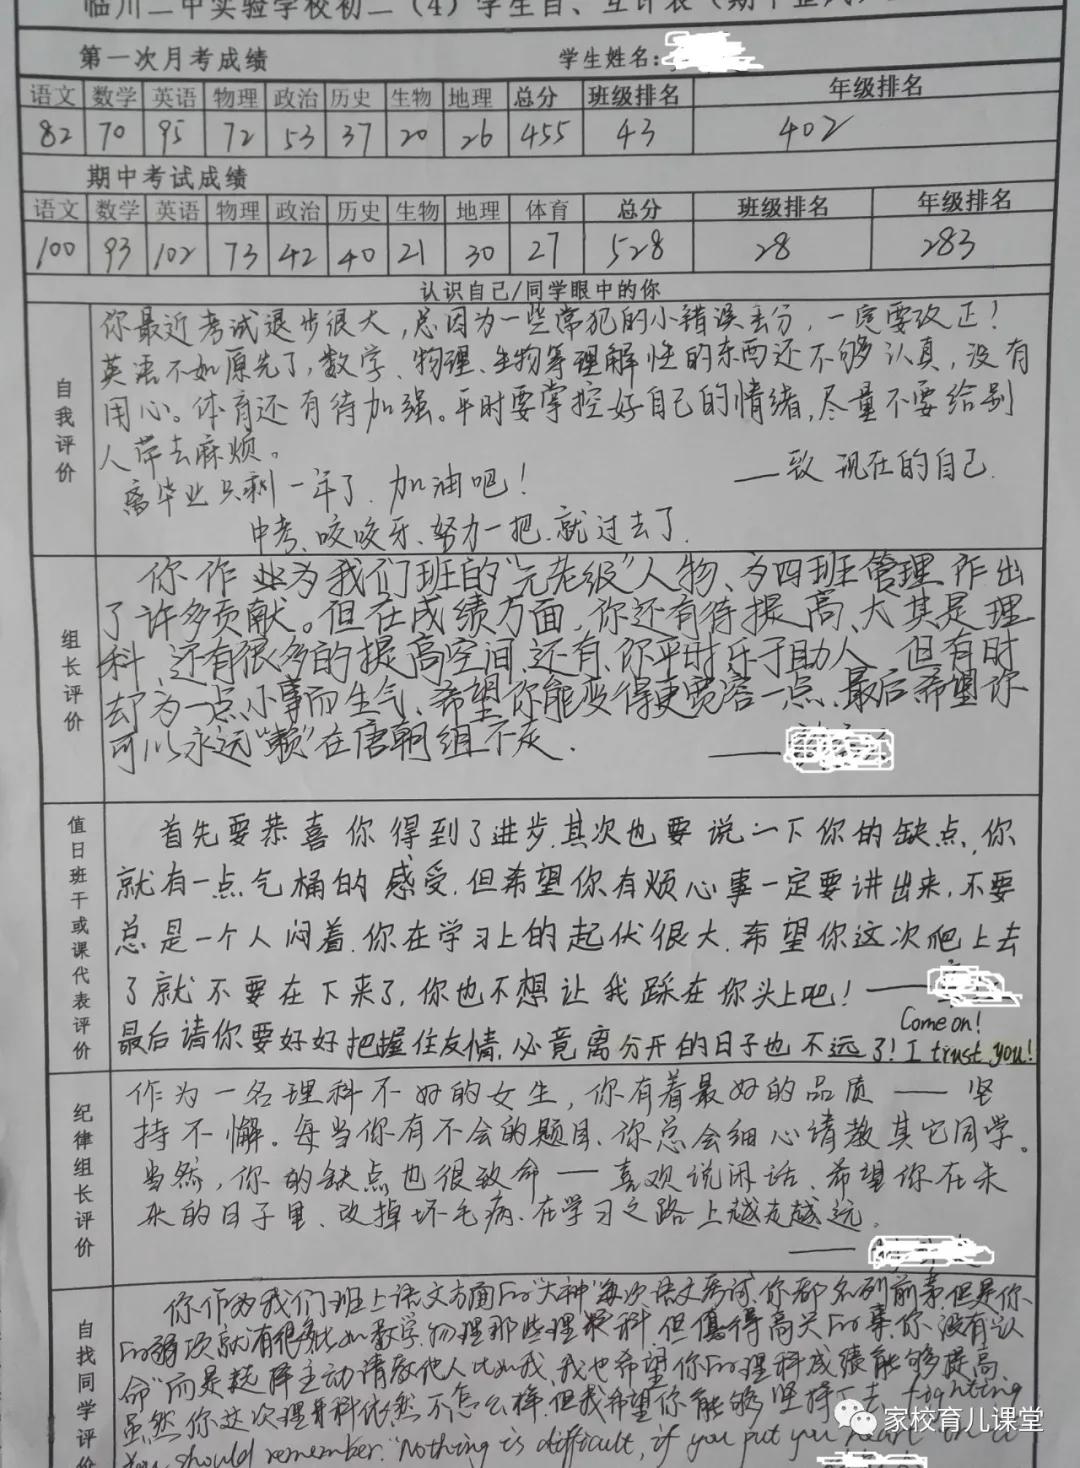 临川二中实验学校初二（4）学生自、互评表（期中
第一次月考成绩 学生姓名:
语文 数学 英语 物理 政治 历史 生物 地理 总分 班级排名 年级排名
82 70 95 72 53 37 20 26 455 43 402
期中考试成绩
语文 数学 英语 物理 政治 历史 生物 地理 体育 总分 班级排名 年级排名
100 93 102 73 42 40 21 30 27 528 28 283
认识自己/同学眼中的你
自我评价
你最近考试退步很大，总因为一些常犯的小错误丢分，一定要改正！
英语不如原先了，数学、物理、生物等理解性的东西还不够认真，没有
用心。体育还有待加强。平时要掌控好自己的情绪，尽量不要给别
人带去麻烦。
——致 现在的自己.
离毕业只剩一年了.加油吧！
中考、咬咬牙、努力一把.就过去了.
组长评价
你作业为我们班的“元老级”人物、为四班管理作出
了许多贡献。但在成绩方面，你还有待提高、尤其是理
科，还有很多的提高空间、还有、你平时乐于助人，但有时
却为一点小事而生气、希望你能变得更宽容一点、最后希望你
可以永远“赖”在唐朝组不走.
——
值日班干或课代表评价
首先要恭喜你得到了进步，其次也要说一下你的缺点，你
就有一点气桶的感受，但希望你有烦心事一定要讲出来，不要
总是一个人闷着，你在学习上的起伏很大，希望你这次爬上去
了就不要在下来了，你也不想让我踩在你头上吧！——
Come on!
最后请你要好好把握住友情，必竟离分开的日子也不远了！I trust you!
纪律组长评价
作为一名理科不好的女生，你有着最好的品质——坚
持不懈。每当你有不会的题目、你总会细心请教其它同学。
当然，你的缺点也很致命——喜欢说闲话、希望你在未
来的日子里、改掉坏毛病、在学习之路上越走越远。
——
自找同学评价
你作为我们班上语文方面For“大神”每次语文考试，你都名列前茅，但是你
For弱项就有很多比如数学、物理那些理科，但值得高兴For事，你没有“认
命”而是选择主动请教他人比如我、我也希望你For理科成绩能够提高、
虽然你这次理科依然不怎么样，但我希望你能够坚持下去 fighting
You should remember: "Nothing is difficult, if you put you heart
家校育儿课堂